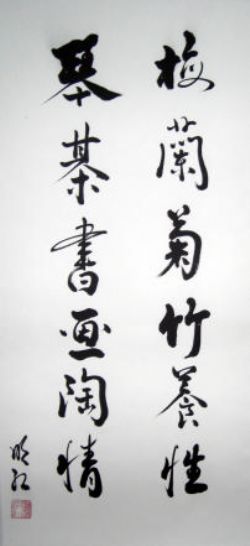 梅蘭菊竹養性
琴棋書画陶情